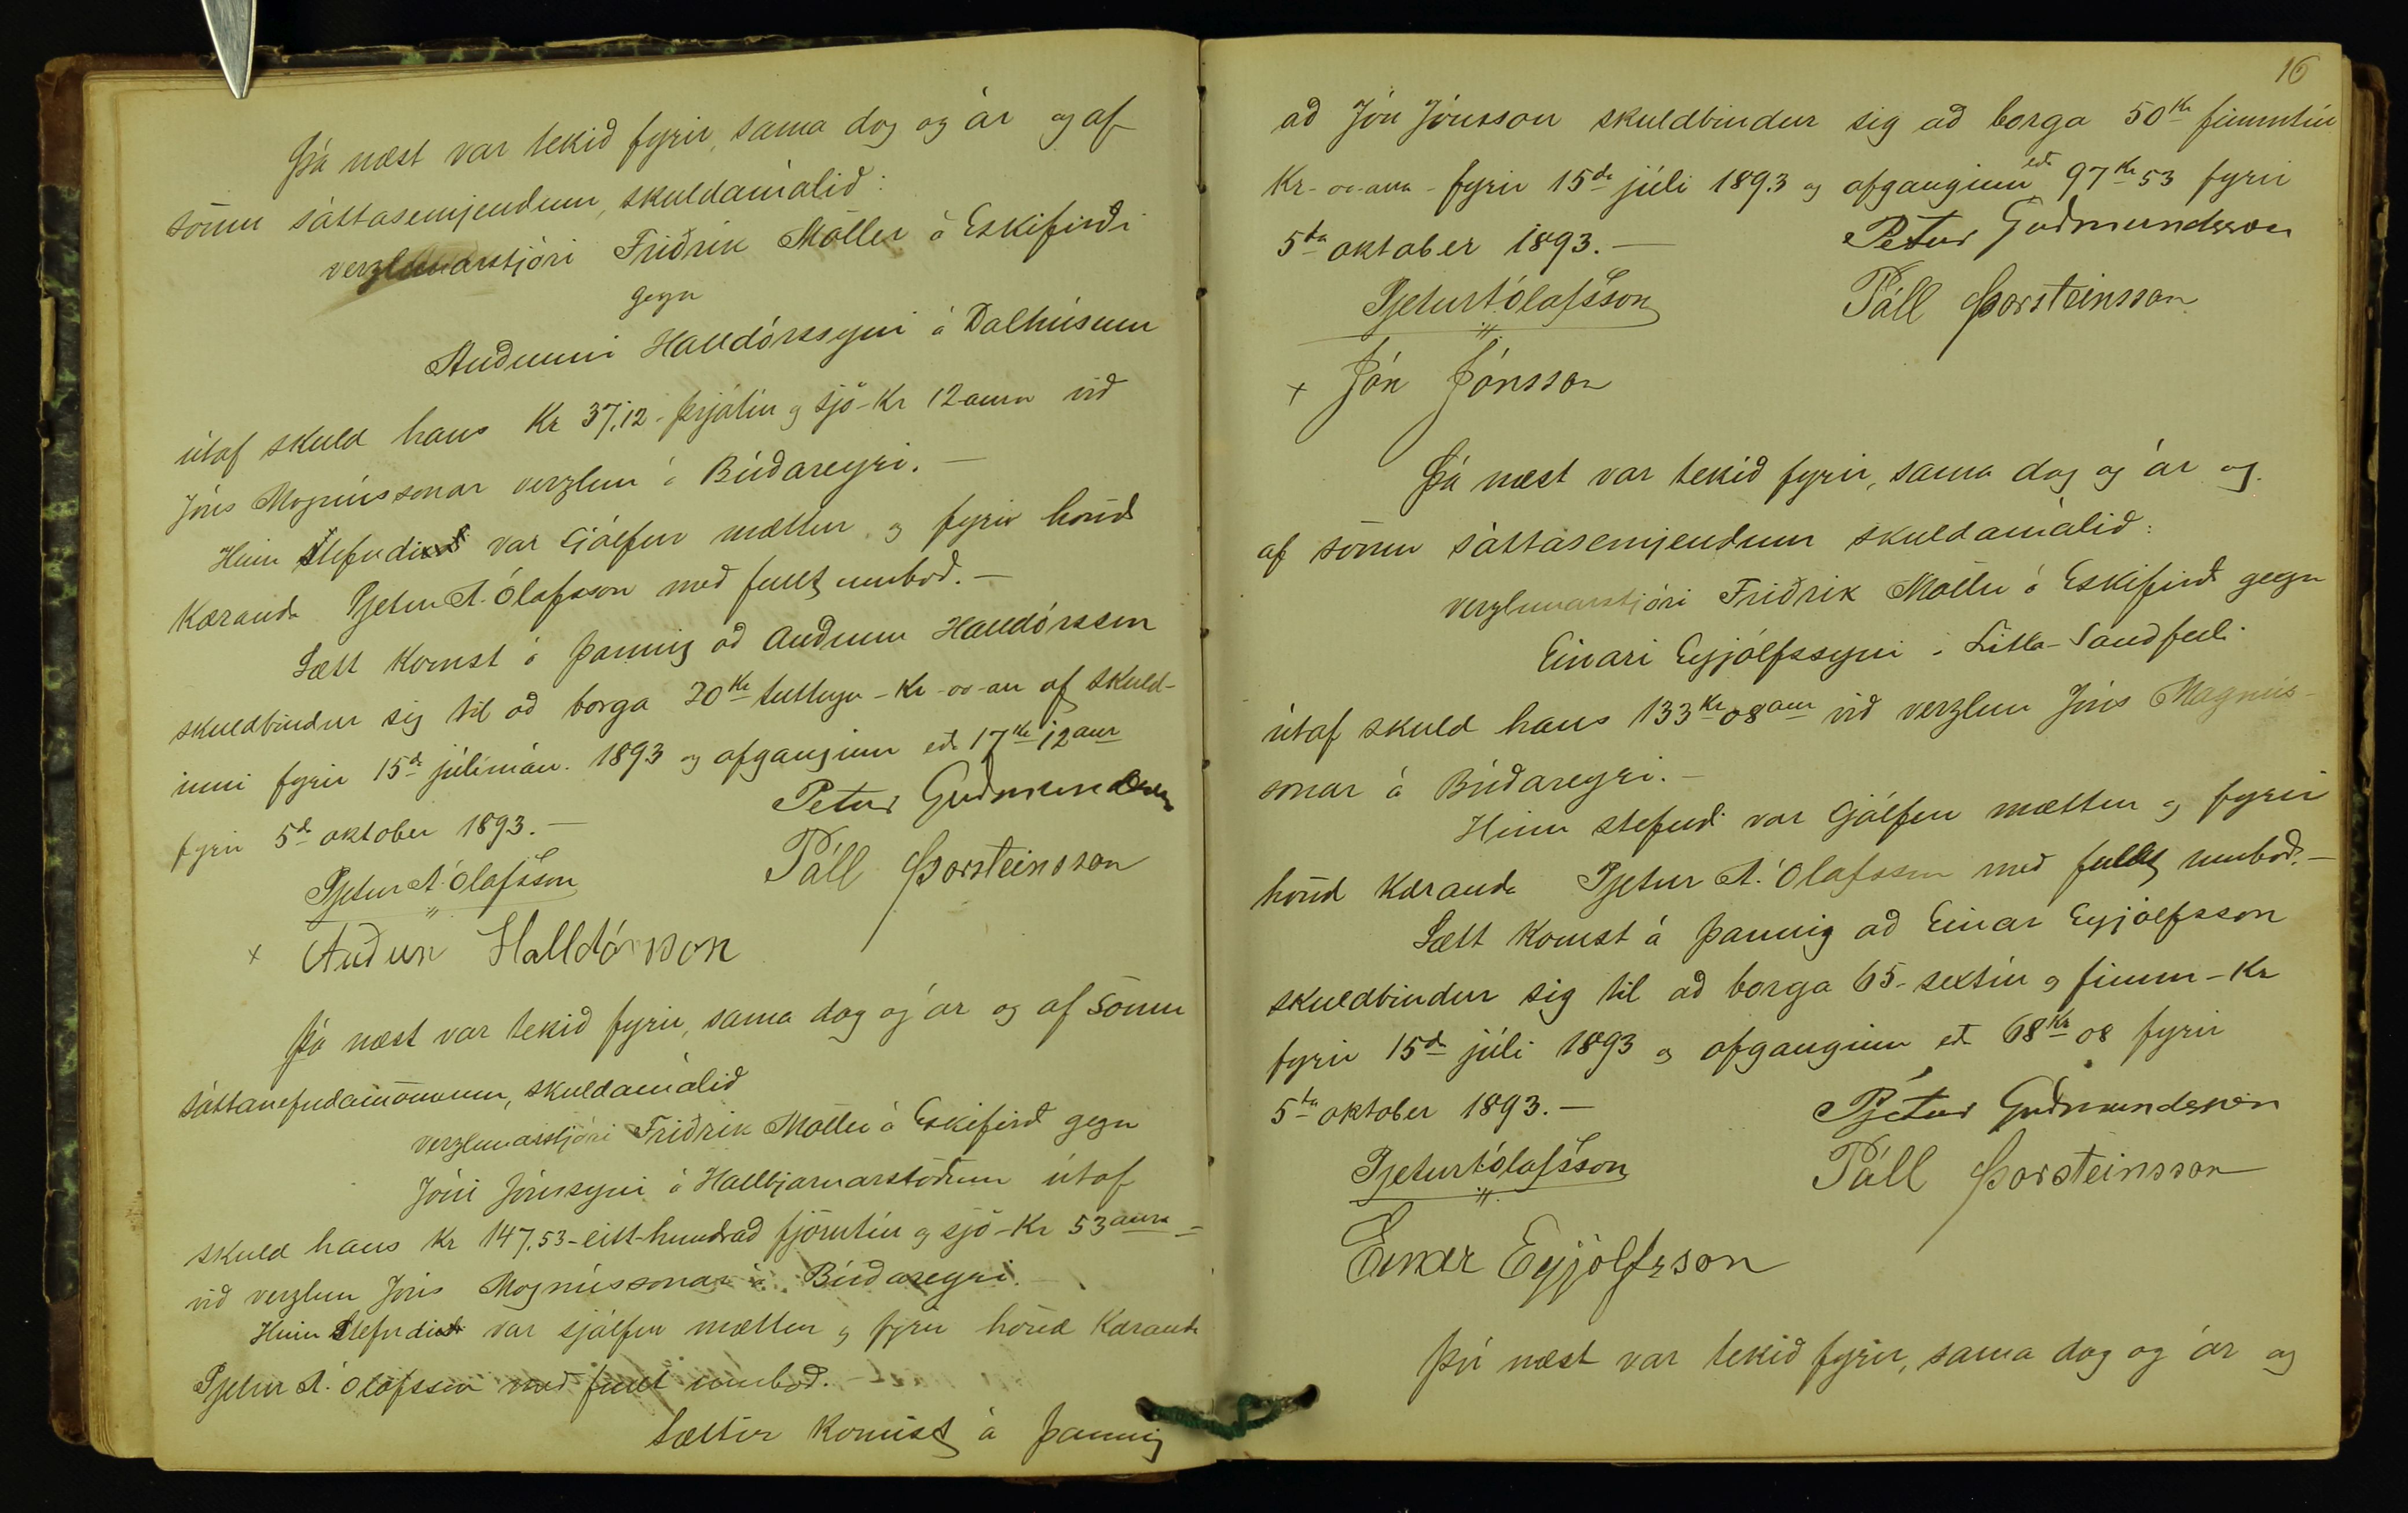 Þá næst var tekið fyrir, sama dag og ár og af
sömu sáttasemjendum, skuldamálið:
verzlunarstjóri Friðrik Möller á Eskifirði
gegn
Auðunni Halldórssyni á Dalhúsum
útaf skuld hans Kr 37,12 - þrjátíu og sjö - Kr 12 aura við
Jóns Magnússonar verzlun á Búðareyri. —
Hinn stefndi var sjálfur mættur og fyrir hönd
Kæranda Pjetur A. Ólafsson með fullt umboð. —
Sætt komst á þannig að Auðunn Halldórsson
skuldbindur sig til að borga 20 Kr tuttugu - Kr - 00 - au af skuld-
inni fyrir 15da júlímán. 1893 og afganginn eða 17 Kr 12 aur
fyrir 5ta oktober 1893. —
Petur Guðmundsson
Pjetur A. Ólafsson
Páll Þorsteinsson
x Auðun Halldórsson
Þá næst var tekið fyrir, sama dag og ár og af sömu
sáttanefndamönnum, skuldamálið
verzlunarstjóri Friðrik Möller á Eskifirði gegn
Jóni Jónssyni á Hallbjarnarstöðum útaf
skuld hans Kr 147,53 - eitt-hundrað fjörutíu og sjö - Kr 53 aura -
við verzlun Jóns Magnússonar á Búðareyri. —
Hinn stefndi var sjálfur mættur og fyrir hönd Kæranda
Pjetur A. Ólafsson með fullt umboð.
Sættir komust á þannig
16
að Jón Jónsson skuldbindur sig að borga 50 Kr fimmtíu
Kr - 00 - aura - fyrir 15da júli 1893 og afganginn eða 97 Kr 53 fyrir
5ta oktober 1893. —
Petur Guðmundsson
Pjetur A. Ólafsson
Páll Þorsteinsson
x Jón Jónsson
Þá næst var tekið fyrir, sama dag og ár og
af sömu sáttasemjendum skuldamálið:
verzlunarstjóri Friðrik Möller á Eskifirði gegn
Einari Eyjólfssyni á Litla-Sandfelli
útaf skuld hans 133 Kr 08 aur við verzlun Jóns Magnús-
sonar á Búðareyri. —
Hinn stefndi var sjálfur mættur og fyrir
hönd Kæranda Pjetur A. Ólafsson með fullt umboð. —
Sætt komst á þannig að Einar Eyjólfsson
skuldbindur sig til að borga 65 - sextíu og fimm - Kr
fyrir 15da júli 1893 og afganginn eða 68 Kr 08 fyrir
5ta oktober 1893. —
Pjetur Guðmundsson
Pjetur A. Ólafsson
Páll Þorsteinsson
Einar Eyjólfsson
Þá næst var tekið fyrir, sama dag og ár og